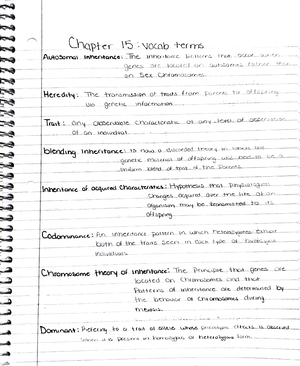 Chapter 15: Vocab terms
Autosomal Inheritance: The inheritance patterns that occur when
genes are located on autosomes rather than
on Sex Chromosomes.
Heredity: The transmission of traits from parents to offspring
via genetic information.
Trait: Any observable characteristic at any level of
of an individual.
Blending Inheritance: Is now a discarded theory in which the
genetic material of offspring was said to be a
uniform blend of that of the Parents.
Inheritance of acquired Characteristics: Hypothesis that Physiological
Changes acquired over the life of an
organism may be transmitted to its
offspring.
Codominance: An inheritance pattern in which heterozygotes exhibit
both of the traits seen in each type of homozygous
individuals.
Chromosome theory of inheritance: The Principle that genes are
located on Chromosomes and that
Patterns of inheritance are determined by
the behavior of Chromosomes during
meiosis.
Dominant: Refering to a trait or allele whose phenotypic effect is observed
when it is present in homozygous or heterozygous form.